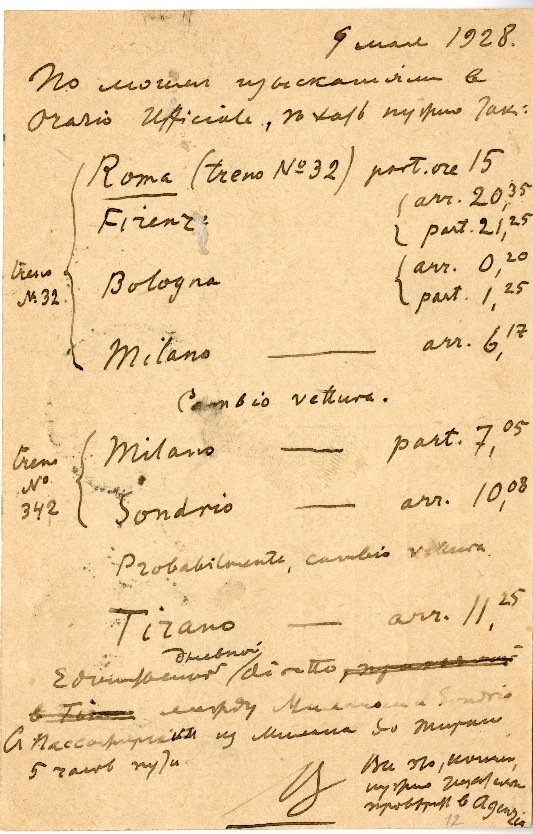 9 мая 1928.
По моим изысканіям в
Orario Ufficiale, ехать нужно так:
Roma (treno No 32) part. ore 15
Firenze arr. 20,35
part. 21,25
treno No 32
Bologna arr. 0,20
part. 1,25
Milano — arr. 6,17
Cambio vettura.
treno No 342
Milano — part. 7,05
Sondrio — arr. 10,08
Probabilmente, cambio vettura
Tirano — arr. 11,25
дневной
Единственный diretto,
в между Миланом и Sondrio
С пассажирским из Милана до Тирано
5 часов пути.
Все это, конечно,
нужно
проверить в Agenzia
12